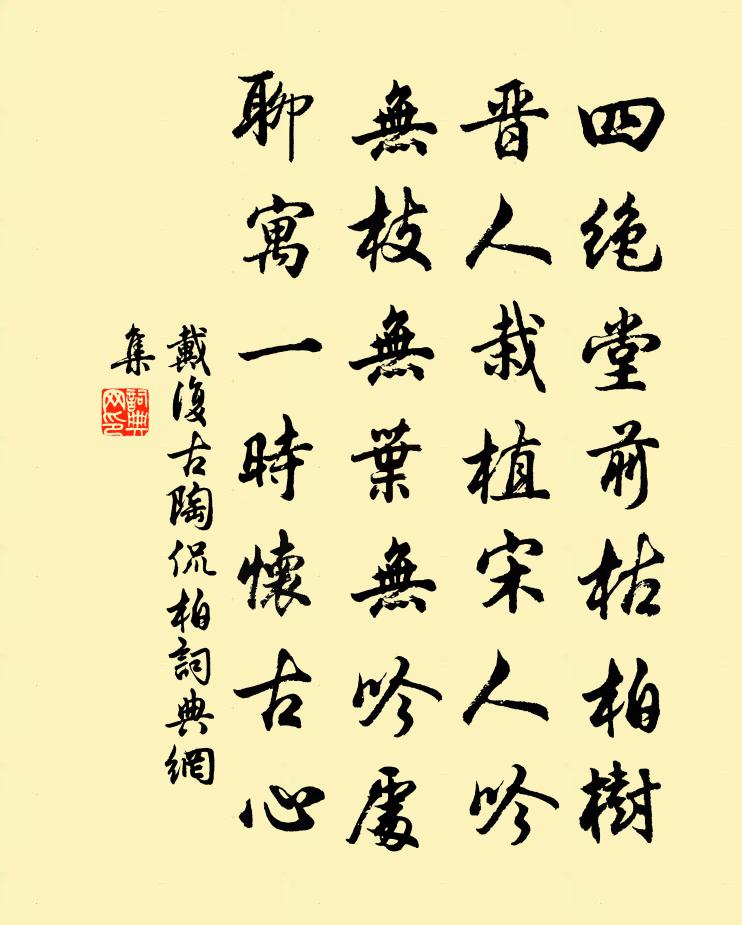 四絶堂前枯柏樹
晋人栽植宋人吟
無枝無葉無吟處
聊寓一時懷古心
戴復古陶侃柏詞典網
集
詞典
网印